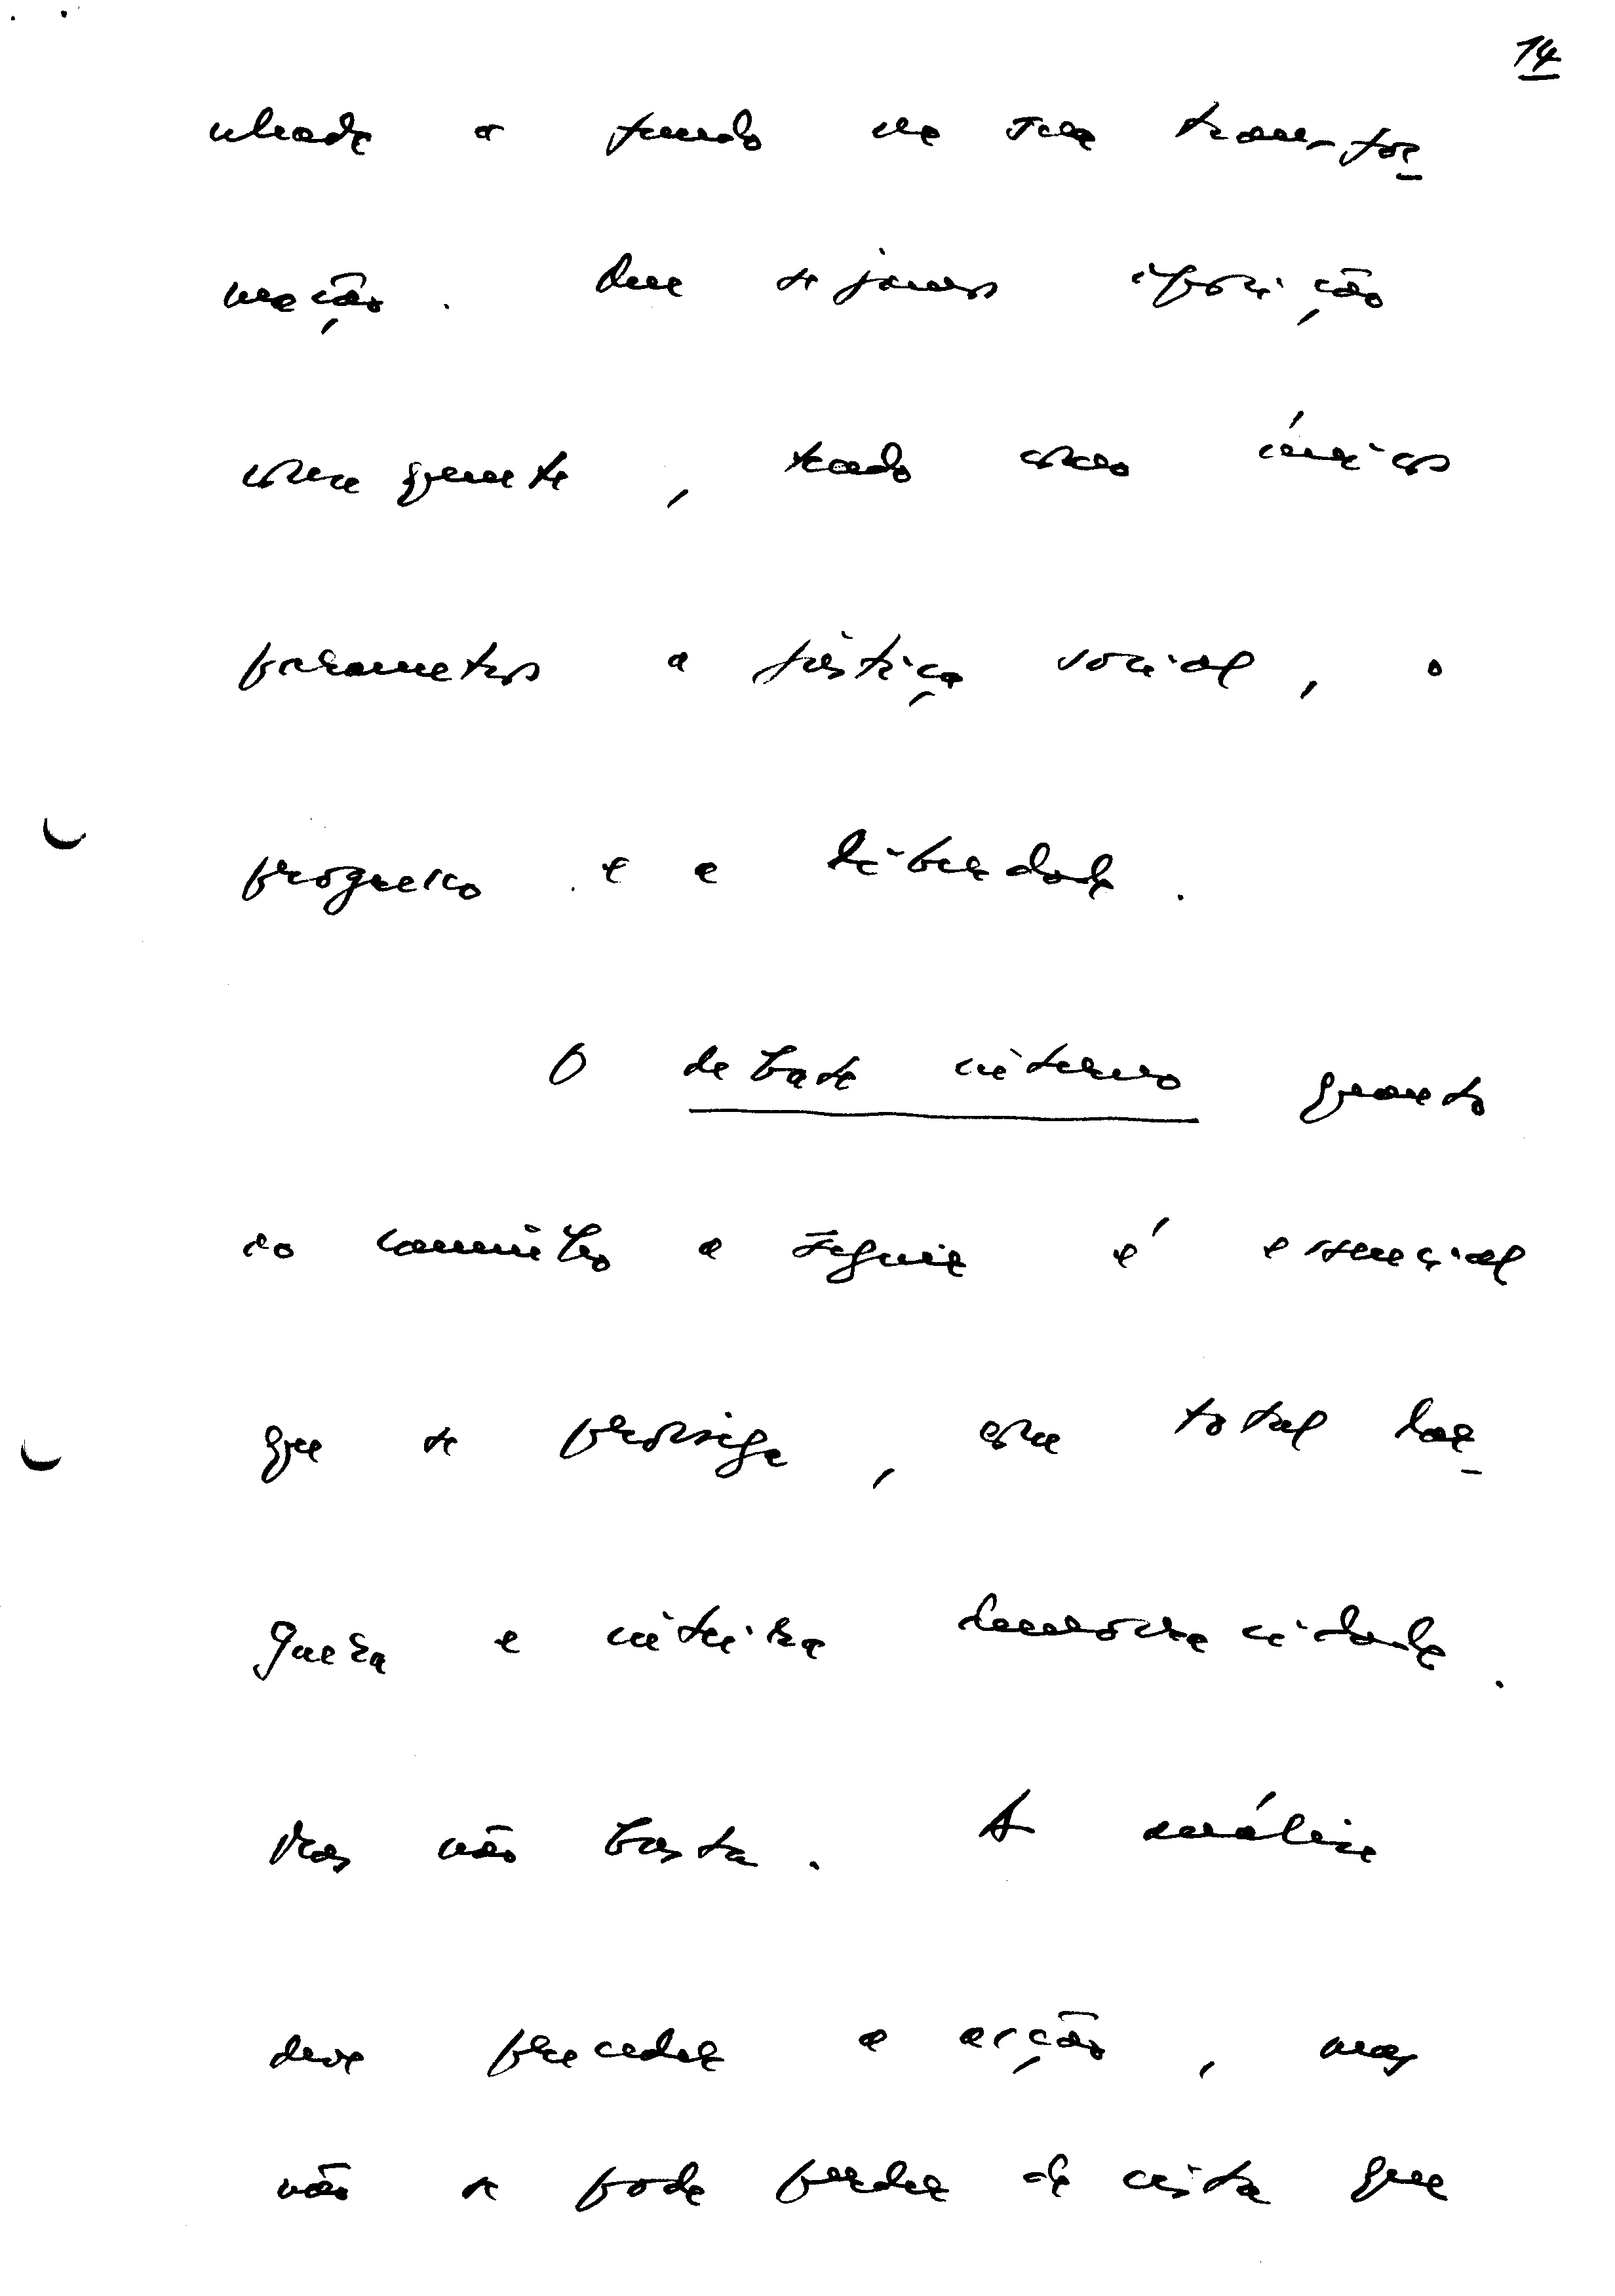 14
nhada a fundo na sua transfor
mação. Que sejamos oposição
consequente, tendo como únicos
parametros a justiça social, o
progresso e a liberdade.
O debate interno quanto
ao caminho a seguir é essencial
que se prossiga, com total lar
gueza e inteira honorabilidade.
Mas não basta. A análise
deve preceder a acção, mas
não se pode perder de vista que